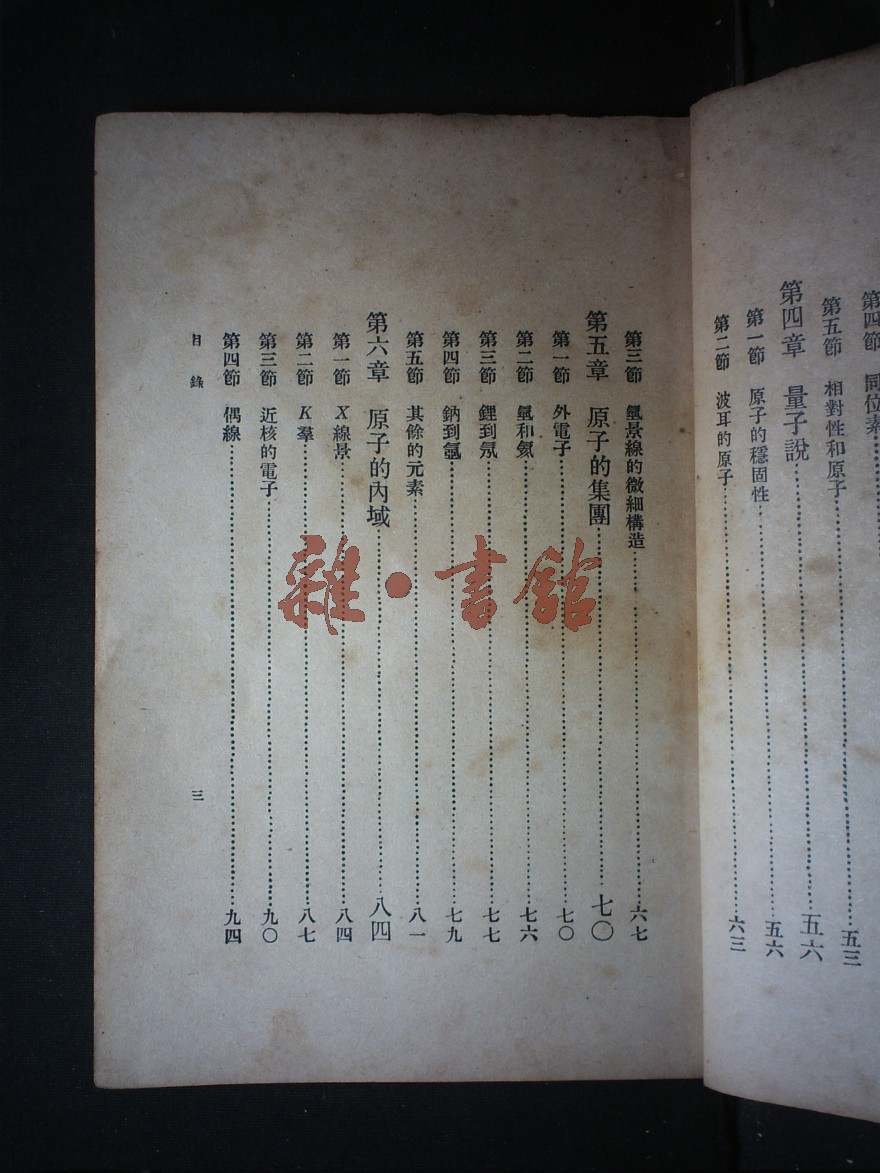 第四節 同位素
第五節 相對性和原子 五三
第四章 量子說 五六
第一節 原子的穩固性 五六
第二節 波耳的原子 六三
第三節 氫景線的微細構造 六七
第五章 原子的集團 七〇
第一節 外電子 七〇
第二節 氫和氦 七六
第三節 鋰到氖 七七
第四節 鈉到氬 七九
第五節 其餘的元素 八一
第六章 原子的內域 八四
第一節 X線景 八四
第二節 K羣 八七
第三節 近核的電子 九〇
第四節 偶線 九四
目錄 三
雜·書館